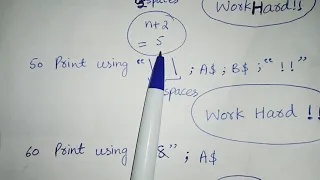 spaces
Work Hard!!
n+2
= 5
50 Print using "\ \ ; A$ ; B$ ; "!!"
spaces
Work Hard !!
60 Print using &" ; A$